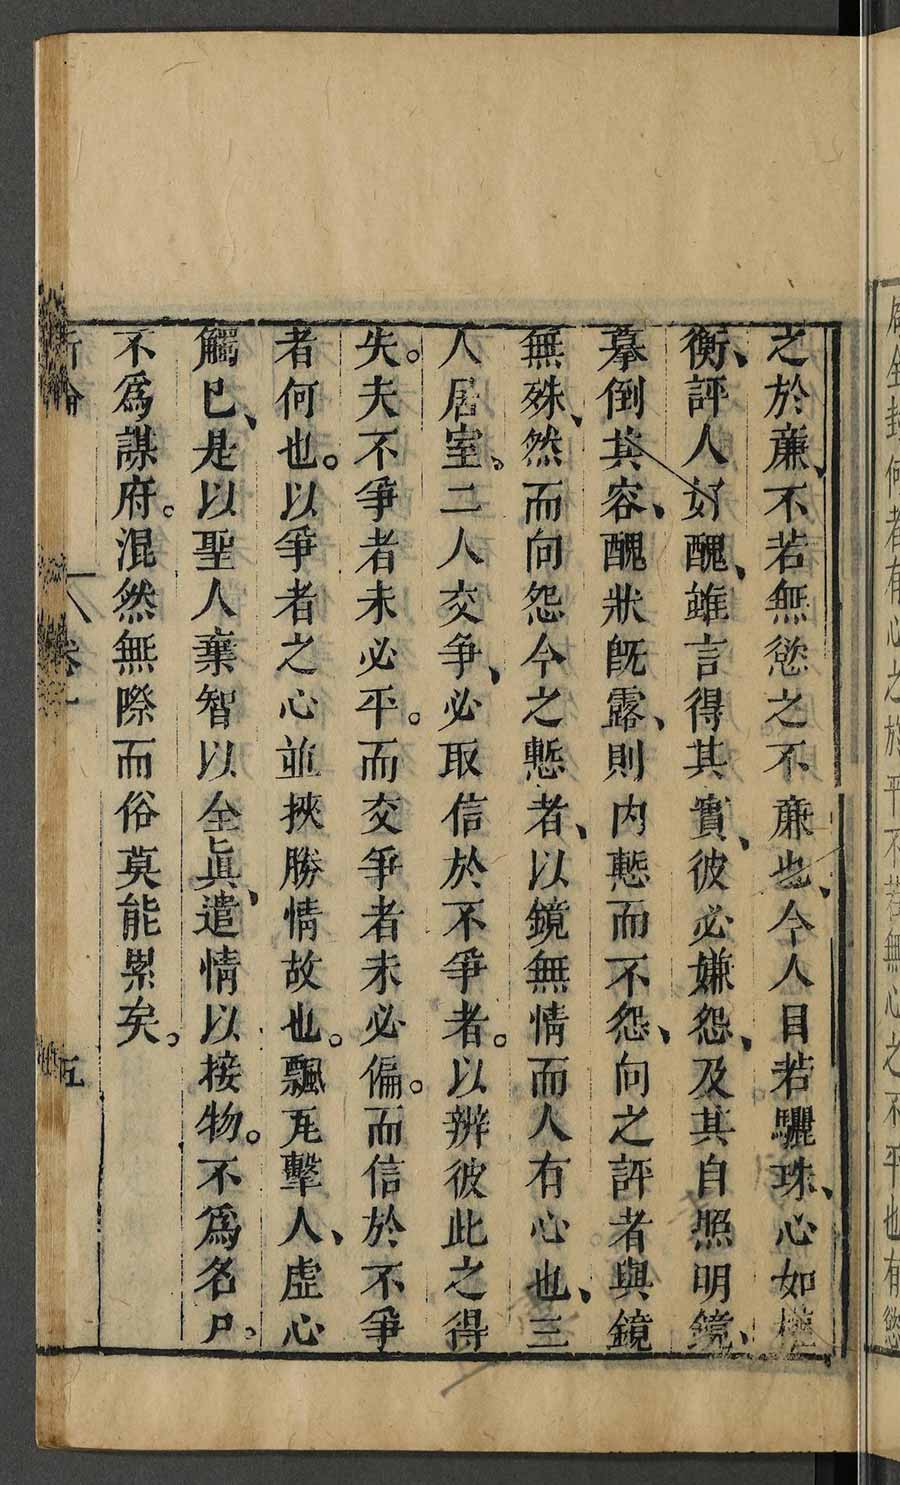 之於廉、不若無慾之不廉也、今人目若驪珠、心如權
衡、評人好醜、雖言得其實、彼必嫌怨、及其自照明鏡、
摹倒其容、醜狀既露、則內慙而不怨、向之評者與鏡
無殊、然而向怨今之慙者、以鏡無情而人有心也、三
人居室。二人交爭、必取信於不爭者。以辨彼此之得
失。夫不爭者未必平。而交爭者未必偏。而信於不爭
者何也。以爭者之心並挾勝情故也。飄瓦擊人、虛心
觸己、是以聖人棄智以全眞、遣情以接物。不爲名尸。
不爲謀府。混然無際而俗莫能累矣。
新論
卷一
五